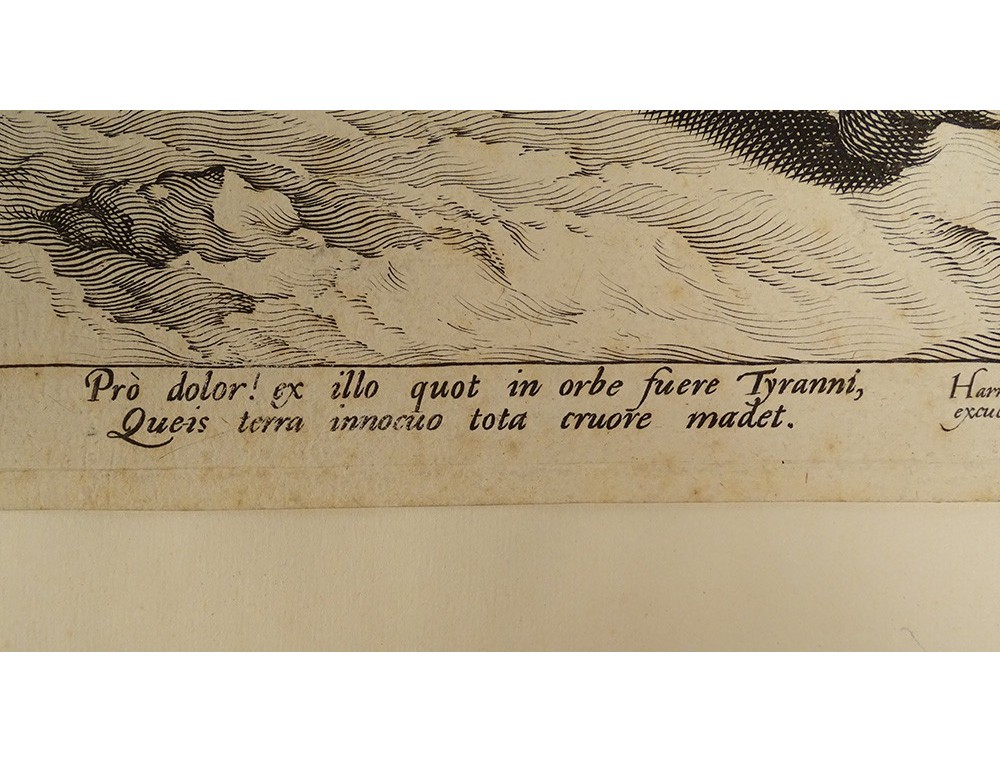 Prò dolor! ex illo quot in orbe fuere Tyranni,
Queis terra innocuo tota cruore madet.